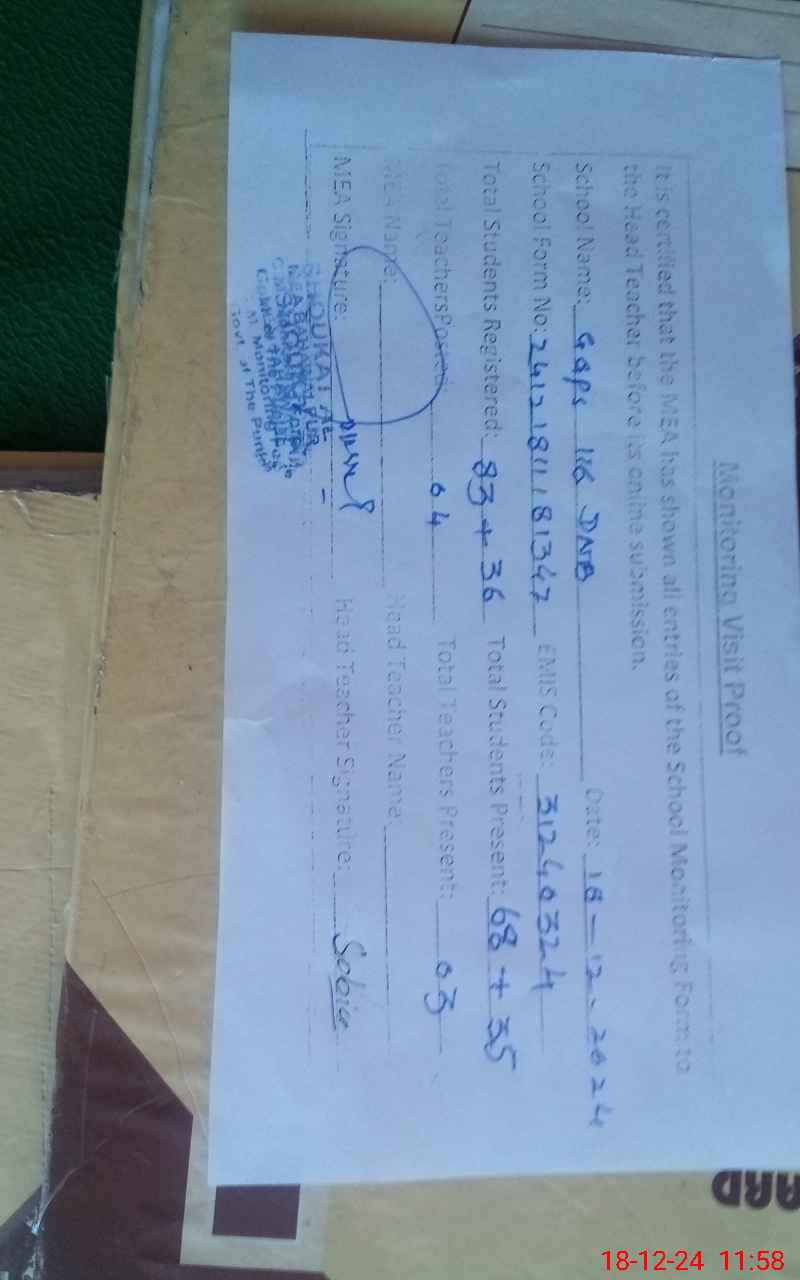 Monitoring Visit Proof
It is certified that the MEA has shown all entries of the School Monitoring Form to
the Head Teacher before its online submission.
School Name: Gaps 116 DNB Date: 18-12-2024
School Form No: 24121811181347 EMIS Code: 31240324
Total Students Registered: 83 + 36 Total Students Present: 68 + 35
Total Teachers Posted 04 Total Teachers Present: 03
MEA Name: Head Teacher Name:
MEA Signature: Head Teacher Signature: Sobia
Monitoring
Govt of The Punjab
ARD
18-12-24 11:58